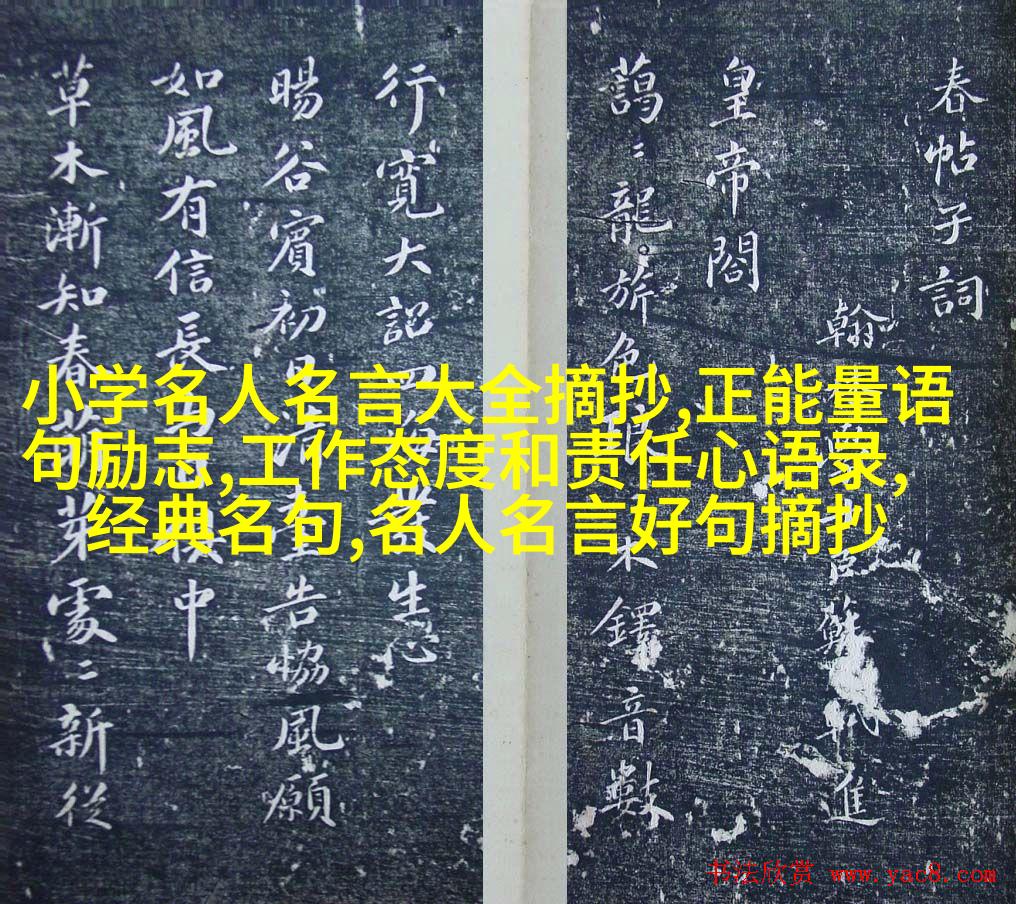 春帖子詞
翰臣蘇軾進
皇帝閤
藹〻龍旂色木鐸音數
行寬大詔四生心
暘谷賓初日告協風願
如風有信長中
草木漸知春芽處〻新從
小学名人名言大全摘抄,正能量语
句励志,工作态度和责任心语录,
经典名句,名人名言好句摘抄
书法欣赏 www.yac8.com